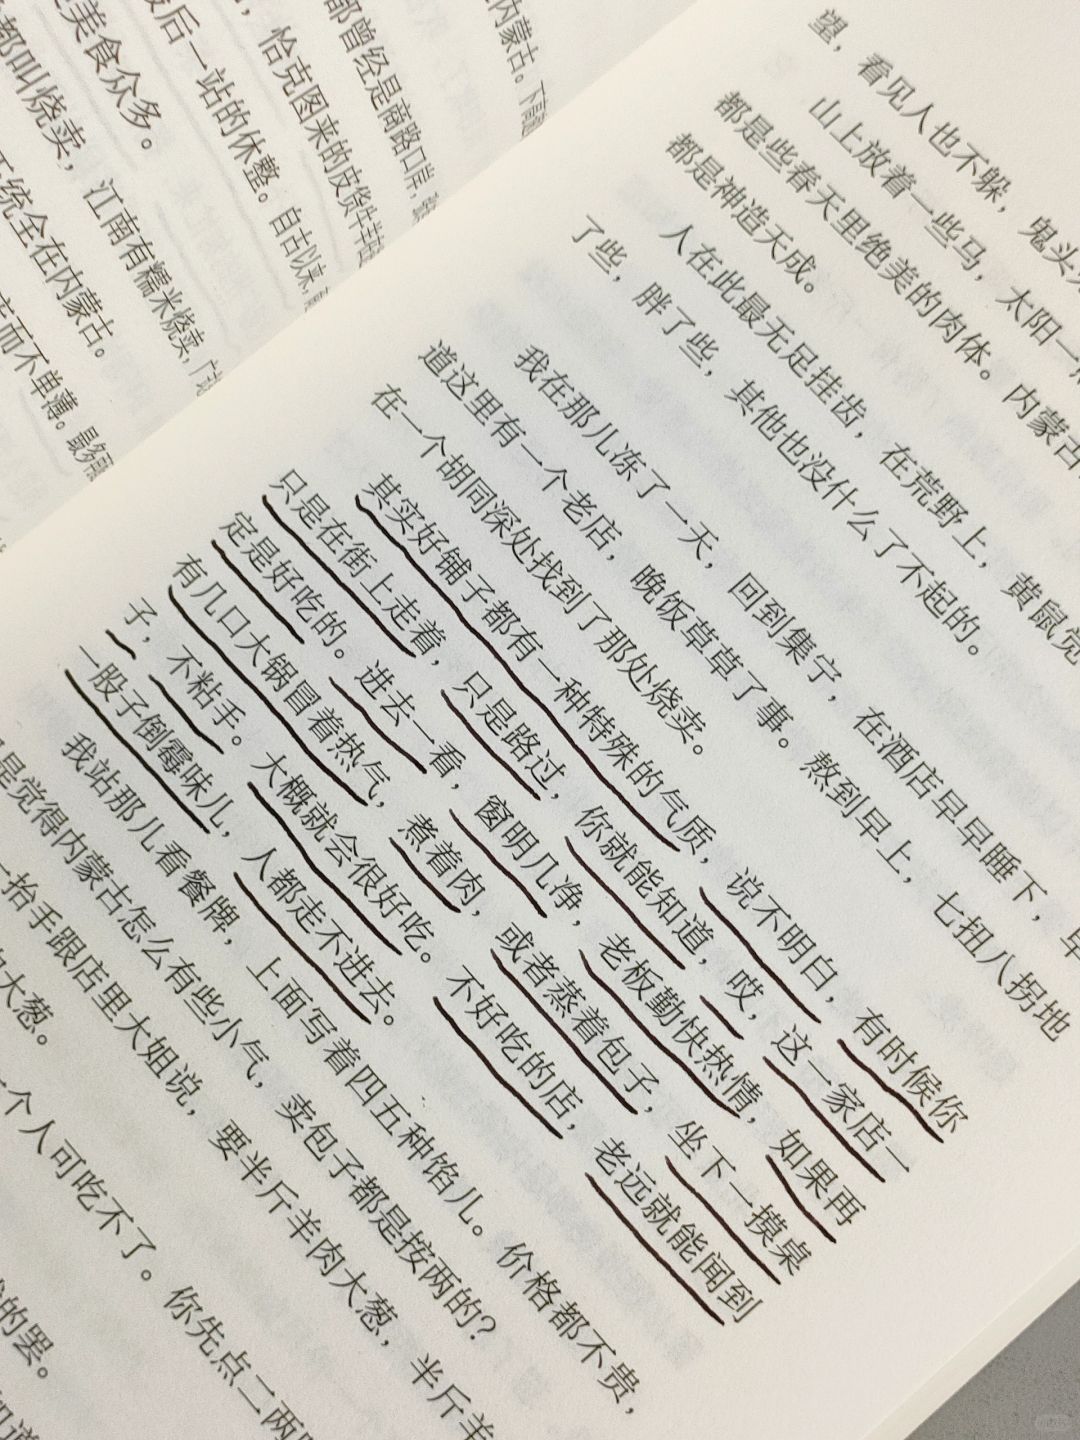 内蒙古。下
都曾经是商路口岸，
，恰克图来的皮货牛羊
最后一站的休整。自古以来，
美食众多。
都叫烧卖，江南有糯米烧卖，广
统全在内蒙古。
而不单薄。最多
望，看见人也不躲，鬼头
山上放着一些马，太阳一
都是些春天里绝美的肉体。内蒙古
都是神造天成。
人在此最无足挂齿，在荒野上，黄鼠觉
了些，胖了些，其他也没什么了不起的。
我在那儿冻了一天，回到集宁，在酒店早早睡下，早
道这里有一个老店，晚饭草草了事。熬到早上，七扭八拐地
在一个胡同深处找到了那处烧卖。
其实好铺子都有一种特殊的气质，说不明白，有时候你
只是在街上走着，只是路过，你就能知道，哎，这一家店一
定是好吃的。进去一看，窗明几净，老板勤快热情，如果再
有几口大锅冒着热气，煮着肉，或者蒸着包子，坐下一摸桌
子，不粘手。大概就会很好吃。不好吃的店，老远就能闻到
一股子倒霉味儿，人都走不进去。
我站那儿看餐牌，上面写着四五种馅儿。价格都不贵，
是觉得内蒙古怎么有些小气，卖包子都是按两的？
一抬手跟店里大姐说，要半斤羊肉大葱，半斤羊
大葱。
个人可吃不了。你先点二两
的罢。